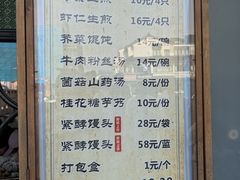 虾仁生煎 16元/4只
荠菜馄饨
牛肉粉丝汤 14元/碗
菌菇山药汤 8元/份
桂花糖芋艿 10元/份
紧酵馒头 28元/袋
紧酵馒头 58元/蓝
打包盒 1元/个